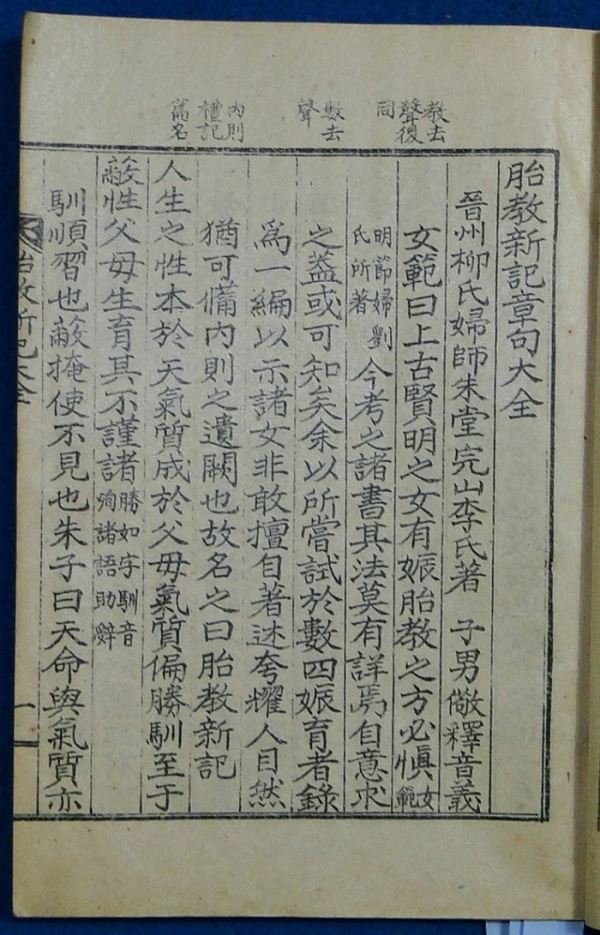 教去
聲後
同
數去
聲
內則
禮記
篇名
胎教新記章句大全
晉州柳氏婦師朱堂完山李氏著 子男儆釋音義
女範曰上古賢明之女有娠胎教之方必愼女範
明節婦劉氏所著今考之諸書其法莫有詳焉自意求
之盖或可知矣余以所嘗試於數四娠育者錄
爲一編以示諸女非敢擅自著述夸耀人目然
猶可備內則之遺闕也故名之曰胎教新記
人生之性本於天氣質成於父母氣質偏勝馴至于
蔽性父母生育其不謹諸勝如字馴音殉諸語助辭
馴順習也蔽掩使不見也朱子曰天命與氣質亦
胎教新記大全
一